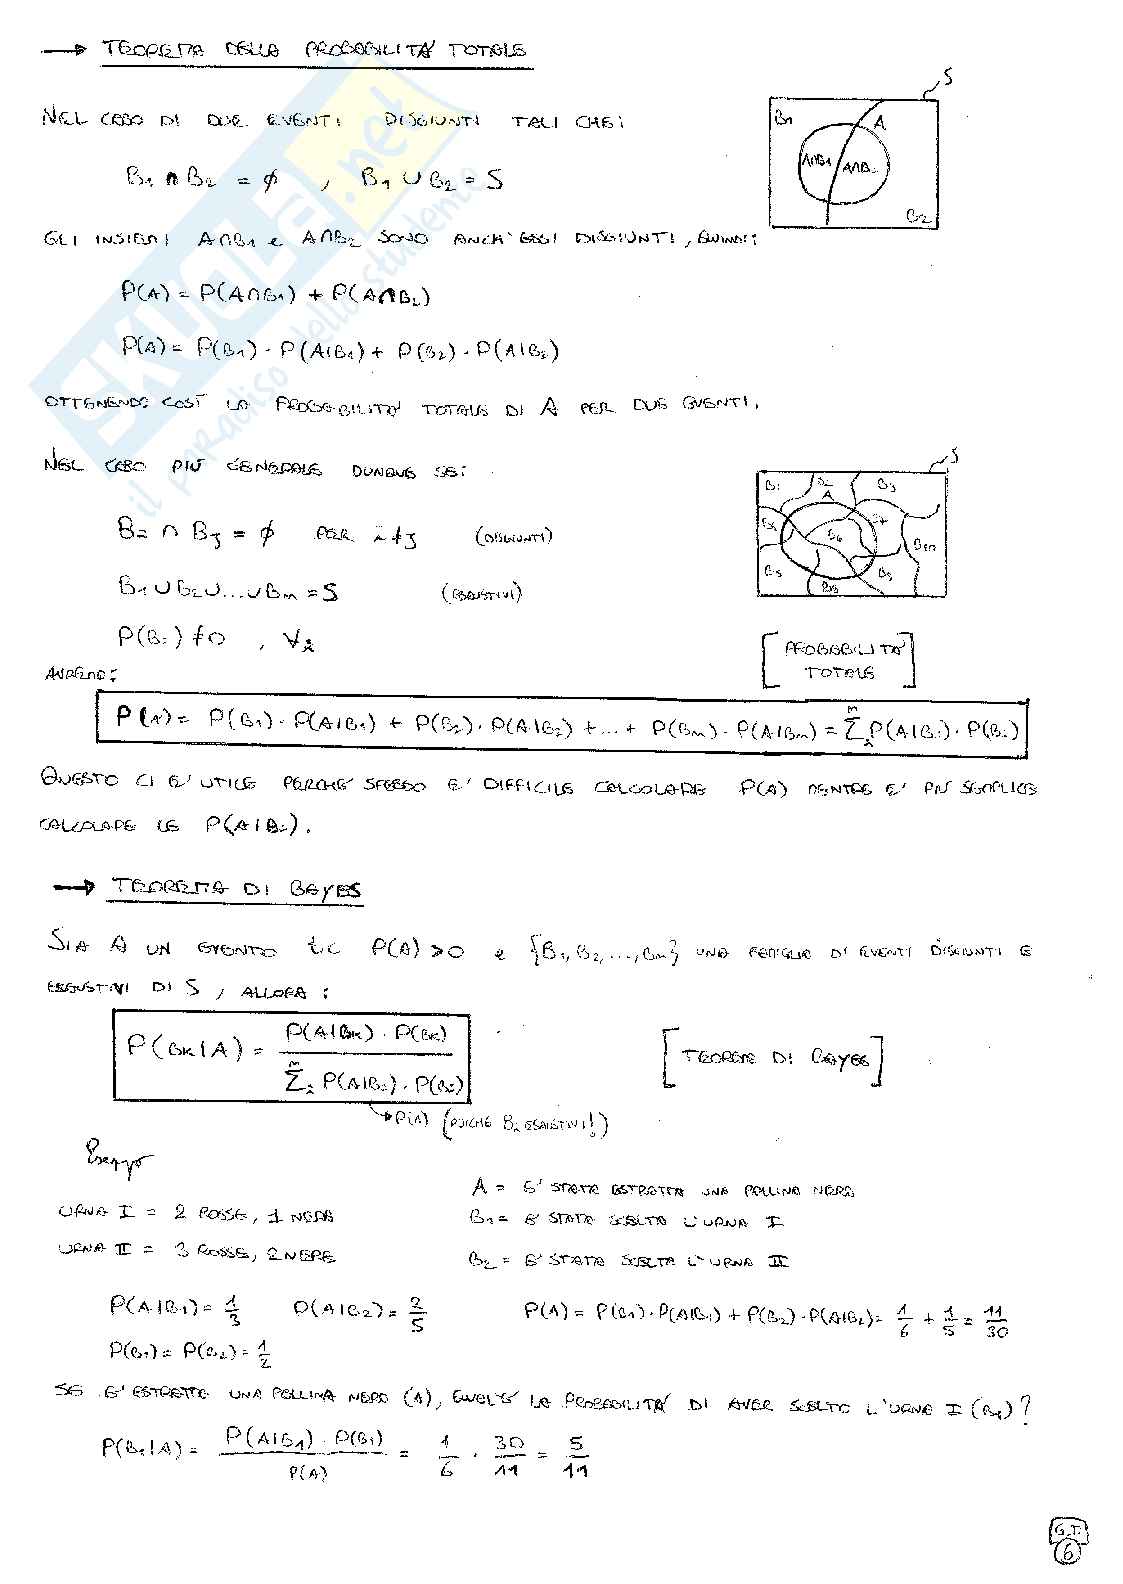 → TEOREMA DELLA PROBABILITA' TOTALE
NEL CASO DI DUE EVENTI DISGIUNTI TALI CHE:
B1 ∩ B2 = ∅ , B1 ∪ B2 = S
S
B1 A
A∩B1 A∩B2
B2
GLI INSIEMI A∩B1 e A∩B2 SONO ANCH'ESSI DISGIUNTI, QUINDI:
P(A) = P(A∩B1) + P(A∩B2)
P(A) = P(B1) · P(A|B1) + P(B2) · P(A|B2)
OTTENENDO COSÌ LA PROBABILITA' TOTALE DI A PER DUE EVENTI.
NEL CASO PIÙ GENERALE DUNQUE SE:
Bi ∩ Bj = ∅ PER i ≠ j (DISGIUNTI)
B1 ∪ B2 ∪ ... ∪ Bm = S (ESAUSTIVI)
P(Bi) ≠ 0 , ∀i
S
B1 B2 B3
A
B6
Bm
B5
AVREMO:
[PROBABILITA' TOTALE]
P(A) = P(B1) · P(A|B1) + P(B2) · P(A|B2) + ... + P(Bm) · P(A|Bm) = Σ^m_i P(A|Bi) · P(Bi)
QUESTO CI E' UTILE PERCHE' SPESSO E' DIFFICILE CALCOLARE P(A) MENTRE E' PIÙ SEMPLICE
CALCOLARE LE P(A|Bi).
→ TEOREMA DI BAYES
SIA A UN EVENTO t.c P(A) > 0 e {B1, B2, ..., Bm} UNA FAMIGLIA DI EVENTI DISGIUNTI E
ESAUSTIVI DI S, ALLORA:
P(BK|A) = P(A|BK) · P(BK) / Σ^m_i P(A|Bi) · P(Bi)
[TEOREMA DI BAYES]
→ P(A) (POICHE' Bi ESAUSTIVI!)
Esempio
A = E' STATA ESTRATTA UNA PALLINA NERA
URNA I = 2 ROSSE, 1 NERA
B1 = E' STATA SCELTA L'URNA I
URNA II = 3 ROSSE, 2 NERE
B2 = E' STATA SCELTA L'URNA II
P(A|B1) = 1/3 P(A|B2) = 2/5 P(A) = P(B1) · P(A|B1) + P(B2) · P(A|B2) = 1/6 + 1/5 = 11/30
P(B1) = P(B2) = 1/2
SE E' ESTRATTA UNA PALLINA NERA (A), QUAL'E' LA PROBABILITA' DI AVER SCELTO L'URNA I (B1)?
P(B1|A) = P(A|B1) · P(B1) / P(A) = 1/6 · 30/11 = 5/11
G.T.
6
SKUOLA.net
il paradiso dello studente